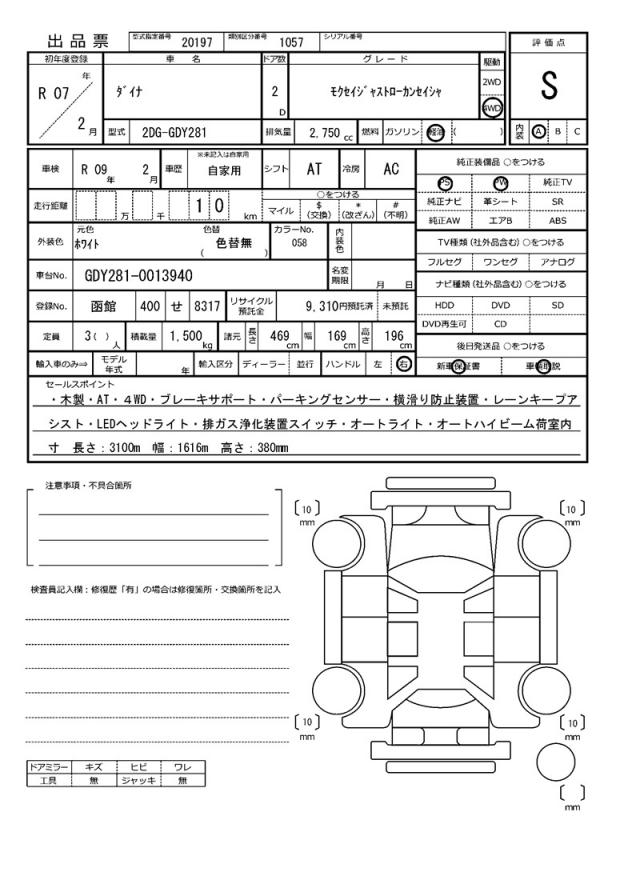 出品票 型式指定番号 20197 類別区分番号 1057 シリアル番号
初年度登録 車名 ドア数 グレード 駆動 評価点
R 07 年 2 月 ﾀﾞｲﾅ 2 D ﾓｸｾｲｼﾞｬｽﾄﾛｰｶﾝｾｲｼｬ 2WD 4WD S
型式 2DG-GDY281 排気量 2,750 cc 燃料 ガソリン 軽油 ( ) 内装 A B C
車検 R 09 年 2 月 車歴 ※未記入は自家用 自家用 シフト AT 冷房 AC 純正装備品 ○をつける
PS PW 純正TV
走行距離 万 千 1 0 km ○をつける 純正ナビ 革シート SR
マイル $ (交換) * (改ざん) # (不明) 純正AW エアB ABS
外装色 元色 ﾎﾜｲﾄ 色替 色替無 ( ) カラーNo. 058 内装色 TV種類 (社外品含む) ○をつける
フルセグ ワンセグ アナログ
車台No. GDY281-0013940 名変期限 月 日 ナビ種類 (社外品含む) ○をつける
登録No. 函館 400 せ 8317 リサイクル預託金 9,310円預託済 未預託 HDD DVD SD
DVD再生可 CD
定員 3( ) 人 積載量 1,500 kg 諸元 長さ 469 cm 幅 169 cm 高さ 196 cm 後日発送品 ○をつける
輸入車のみ⇒ モデル年式 年 輸入区分 ディーラー 並行 ハンドル 左 右 新車保証書 車輌取説
セールスポイント
・木製・AT・４WD・ブレーキサポート・パーキングセンサー・横滑り防止装置・レーンキープア
シスト・LEDヘッドライト・排ガス浄化装置スイッチ・オートライト・オートハイビーム荷室内
寸 長さ：3100m 幅：1616m 高さ：380mm
注意事項・不具合箇所
〔10〕 mm 〔10〕 mm
検査員記入欄：修復歴「有」の場合は修復箇所・交換箇所を記入
〔10〕 mm 〔10〕 mm
ドアミラー キズ ヒビ ワレ
工具 無 ジャッキ 無
〔 〕 mm